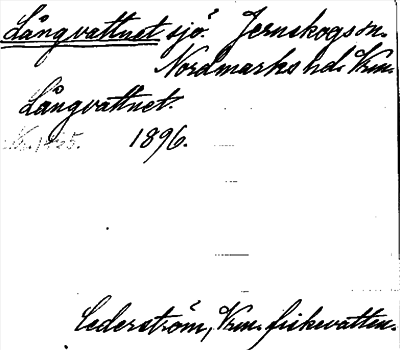 Långvattnet sjö. Jernskogs sn.
Nordmarks hd. Vrm.
Långvattnet.
1896.
Cederström, Vrm. fiskevatten.